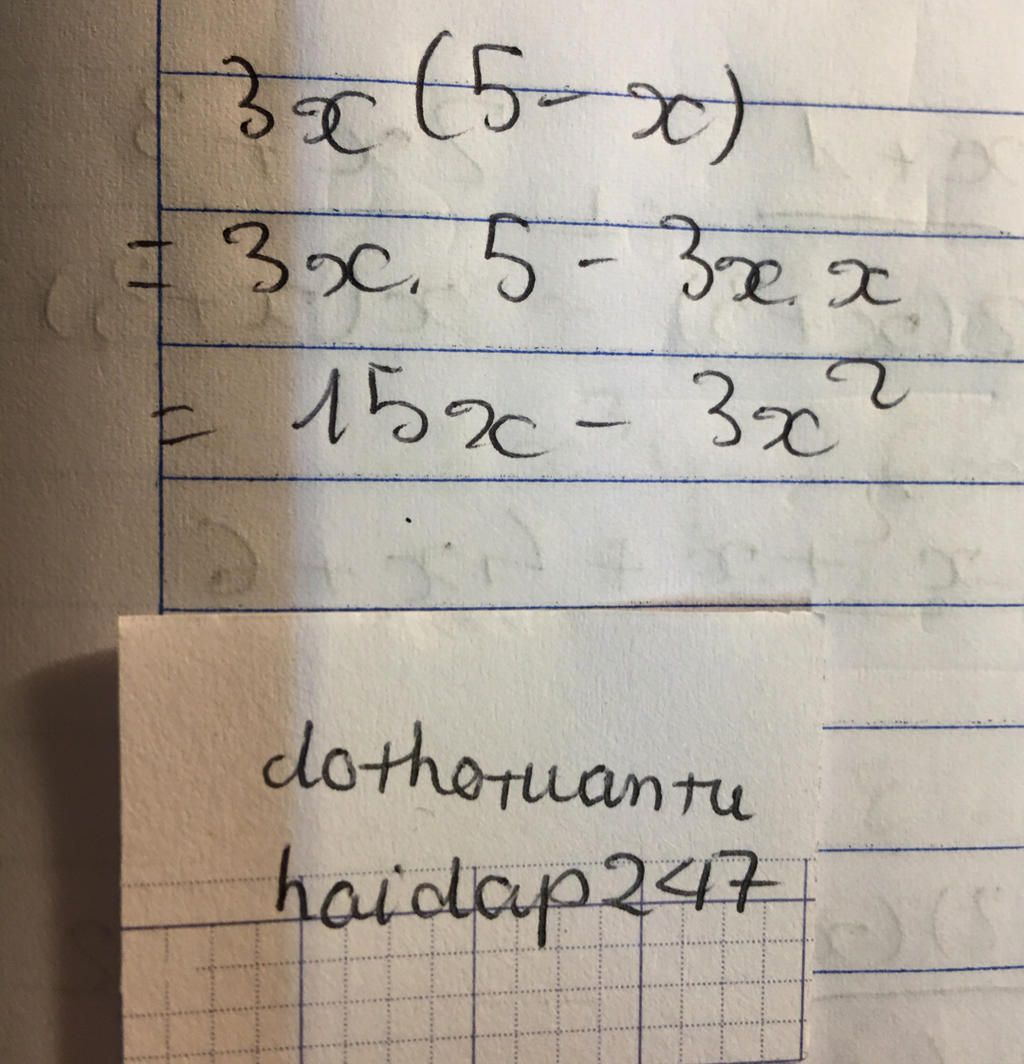 3x(5-x)
= 3x. 5 - 3x. x
= 15x - 3x²
dothotuantu
hoidap247